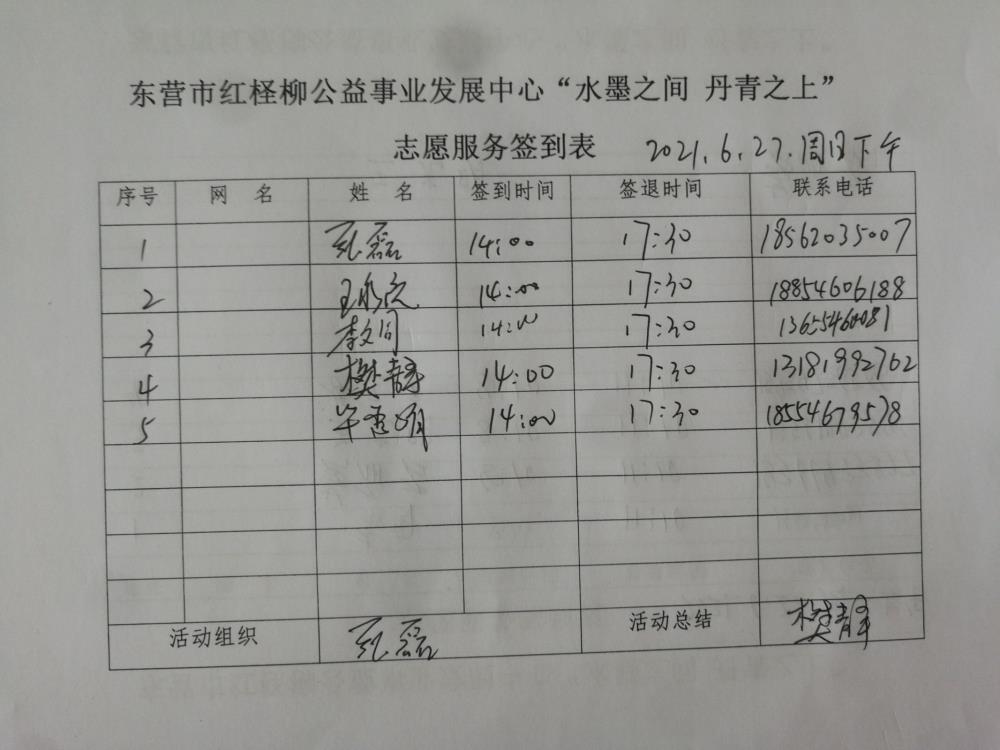 东营市红柽柳公益事业发展中心“水墨之间 丹青之上”
志愿服务签到表 2021.6.27.周日下午
序号 网 名 姓 名 签到时间 签退时间 联系电话
1 磊 14:00 17:30 18562035007
2 14:00 17:30 18854606188
3 李文同 14:00 17:30 13655460081
4 樊静 14:00 17:30 13181992762
5 14:00 17:30 18554679578
活动组织 磊 活动总结 樊静